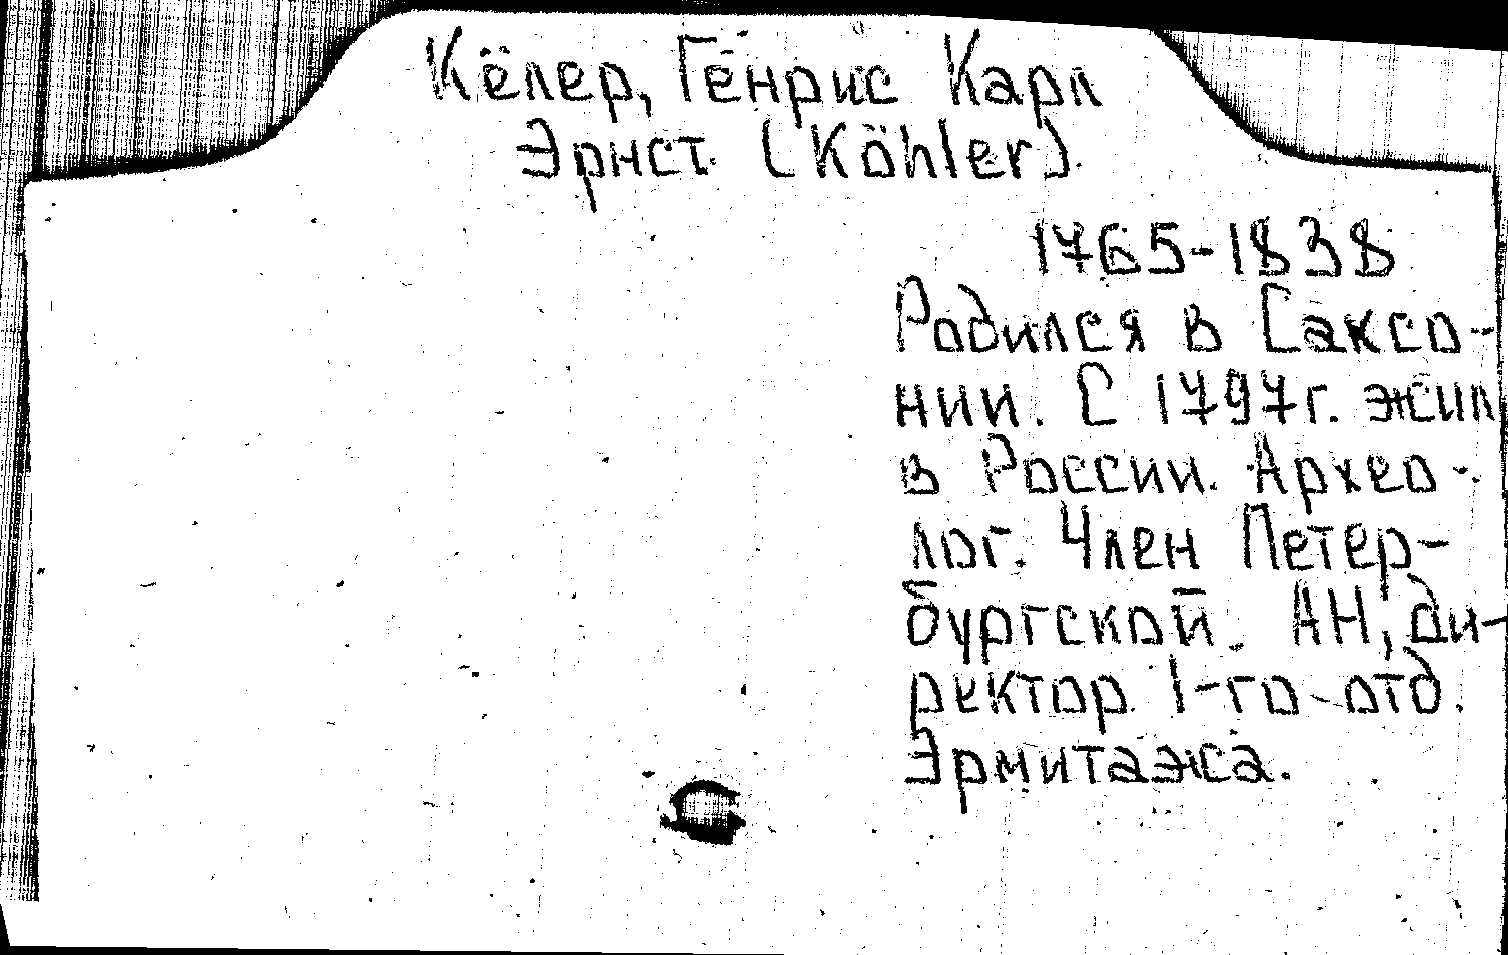 Кёлер, Генрис Карл
Эрнст. (Köhler)
1765-1838
Родился в Саксо-
нии. С 1797г. жил
в России. Архео-
лог. Член Петер-
бургской. АН, ди-
ректор 1-го отд.
Эрмитажа.